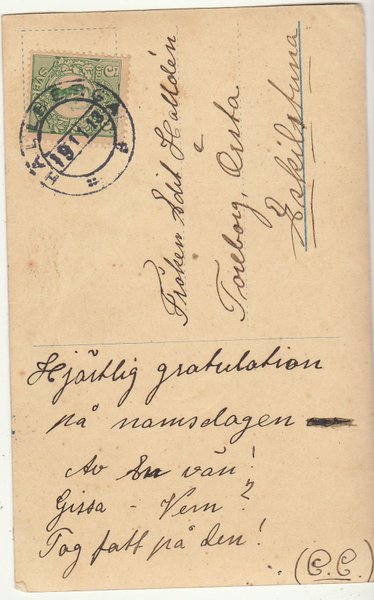 SVERIGE
5
HÄLLBERGA
19.11.13
Fröken Edit Halldén
Toreborg, Örsta
Eskilstuna
Hjärtlig gratulation
på namsdagen
Av En vän!
Gissa - Vem?
Tag fatt på den!
(C.C.)